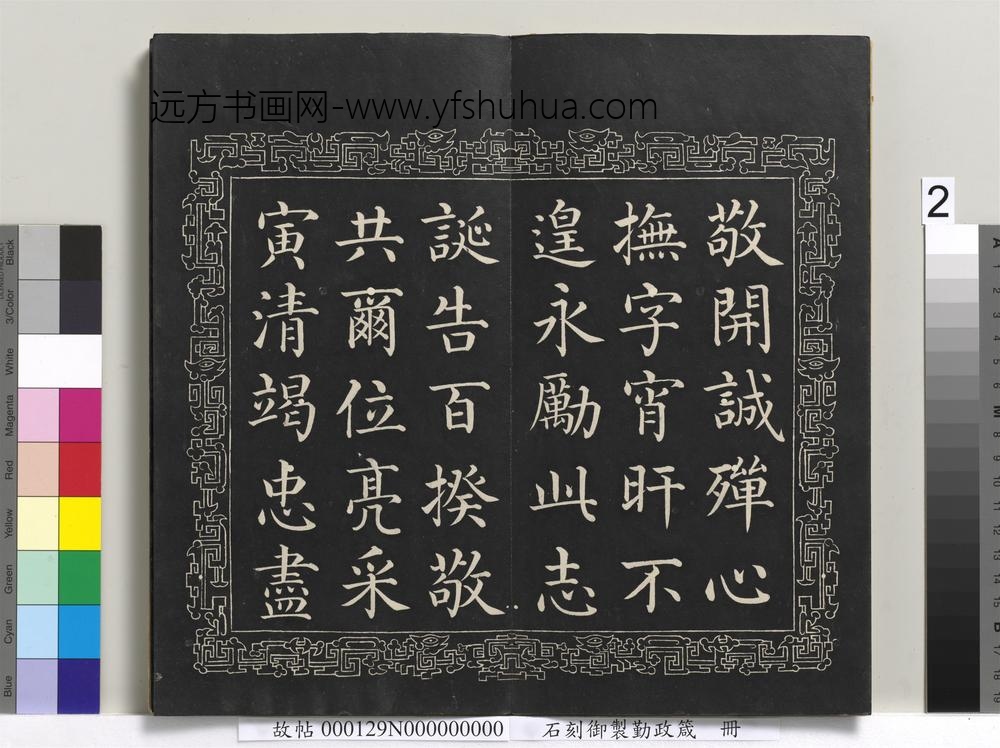 远方书画网-www.yfshuhua.com
敬開誠殫心
撫字宵旰不
遑永勵此志
誕告百揆敬
共爾位亮采
寅清竭忠盡
2
Black
3/Color
White
Magenta
Red
Yellow
Green
Cyan
Blue
故帖 000129N000000000
石刻御製勤政箴 冊